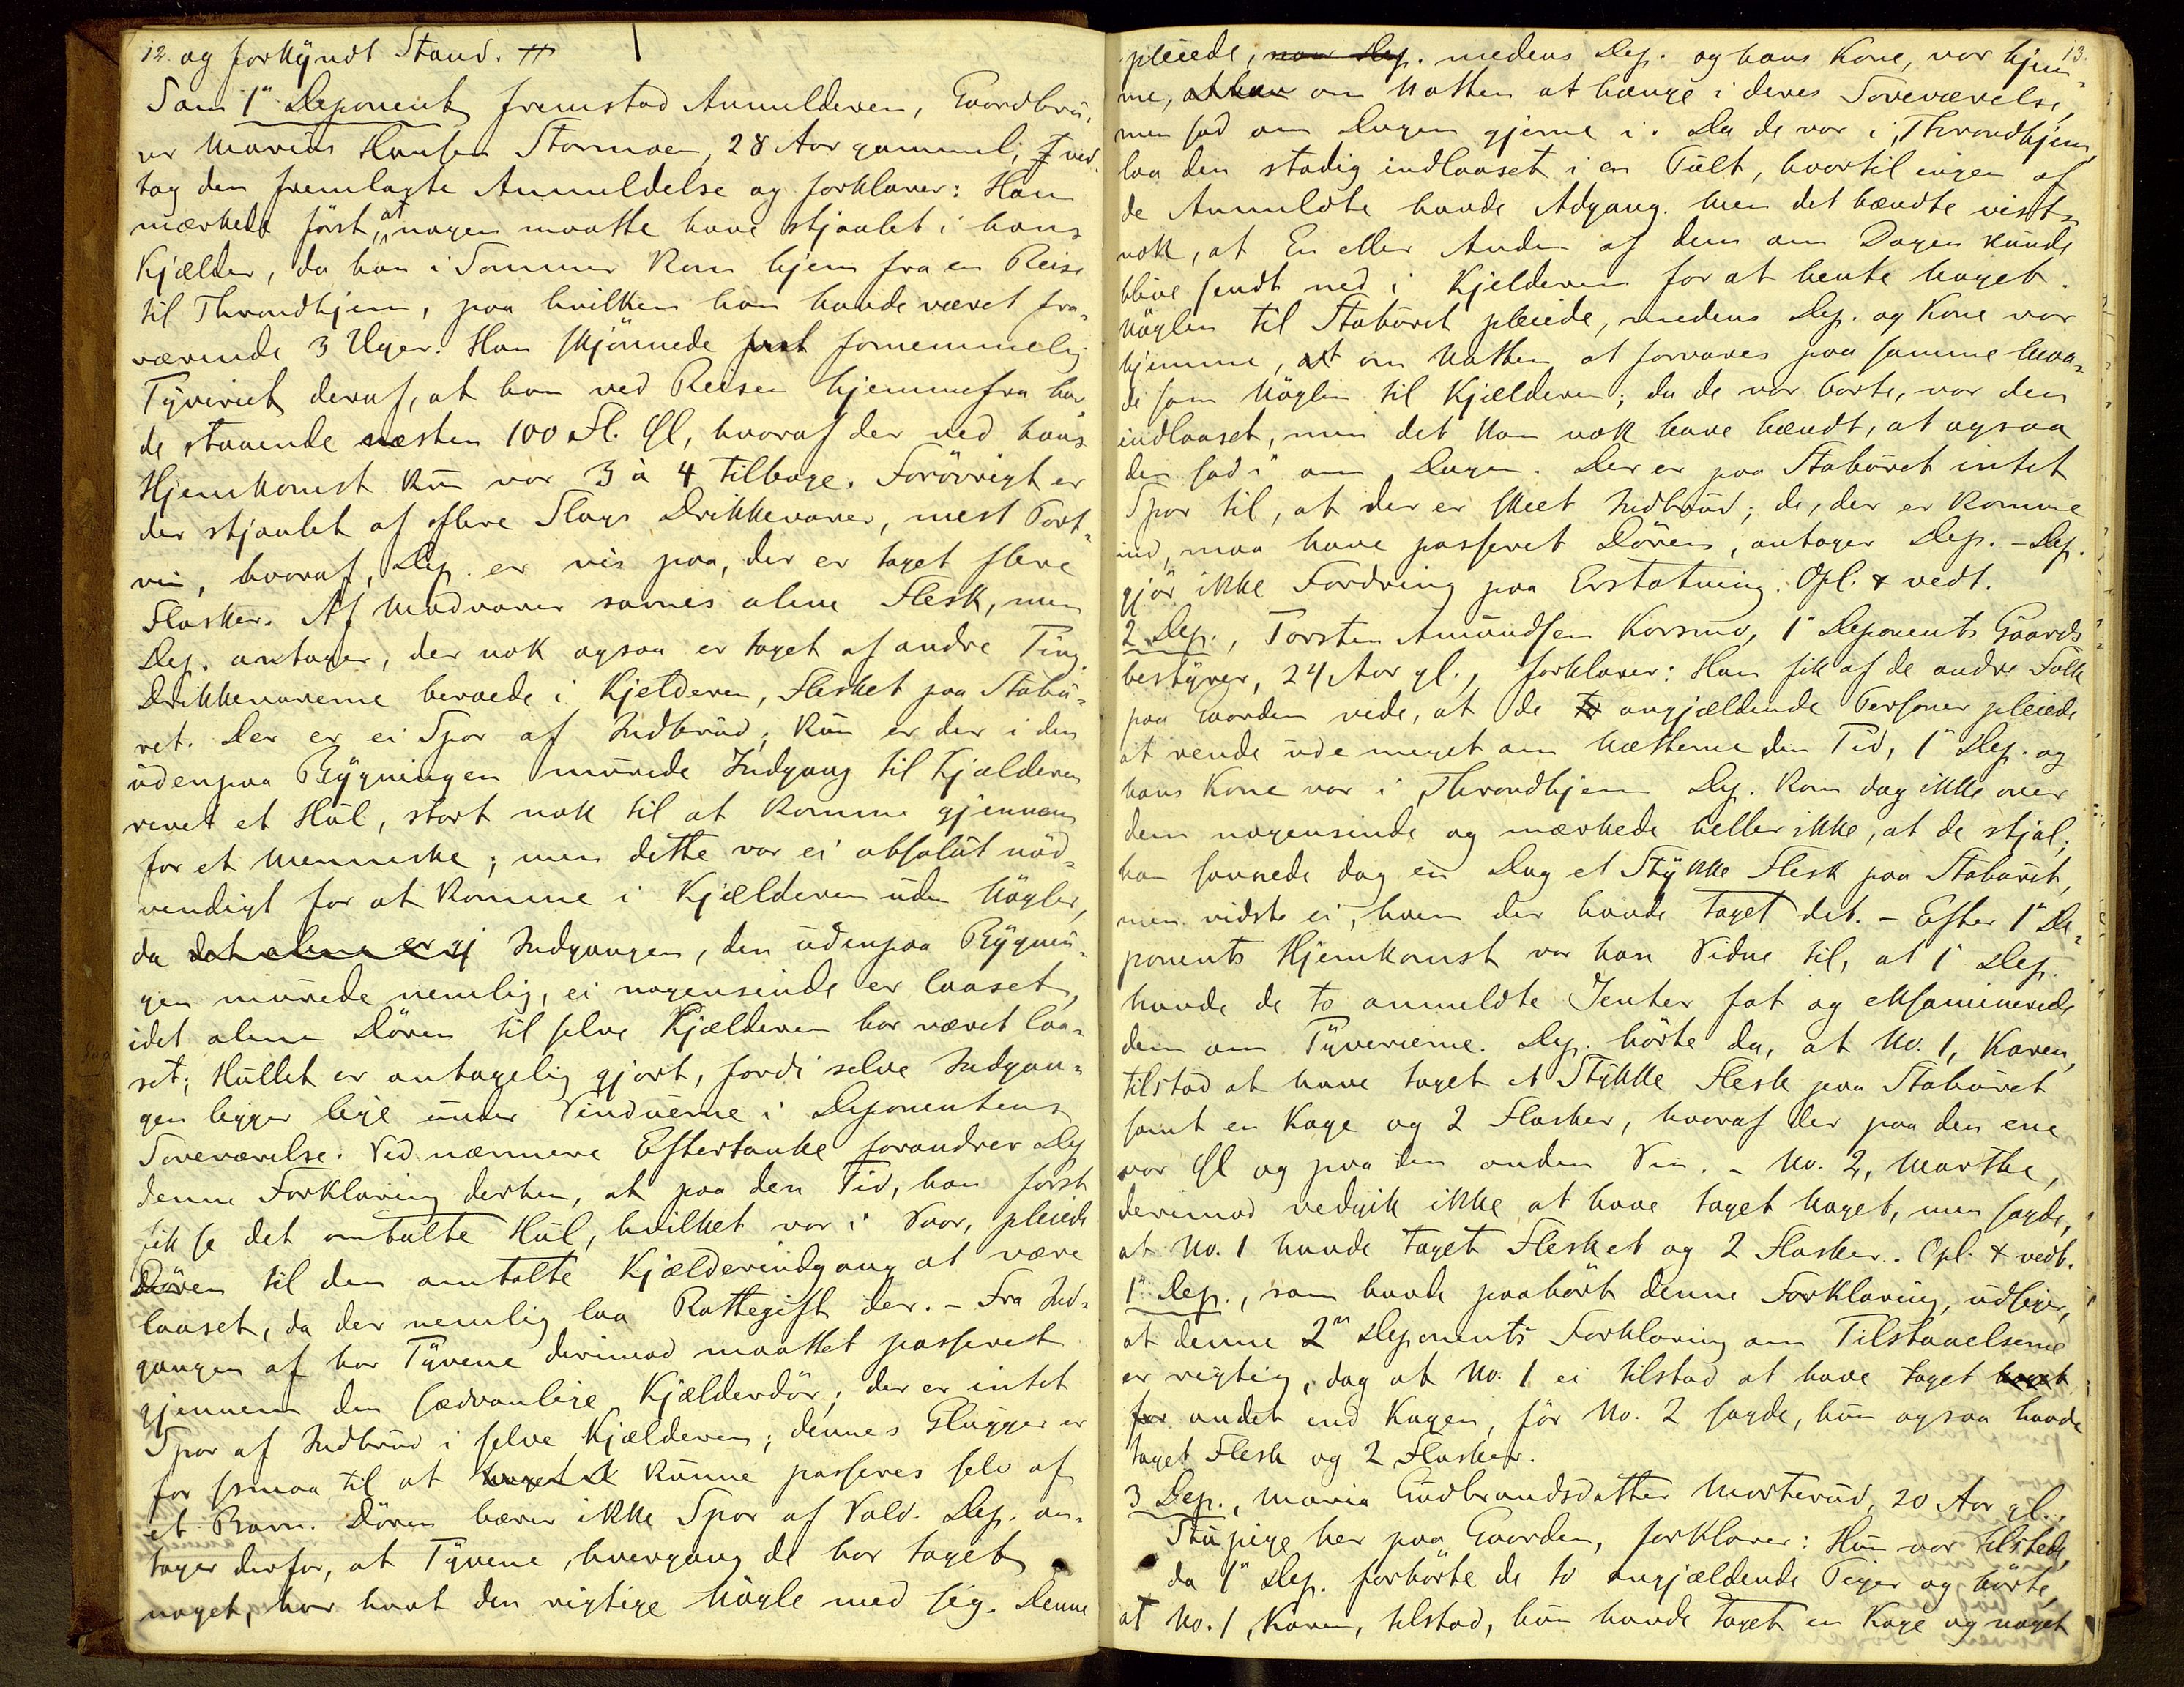 12. og forkyndt Stævn. #
Som 1ste Deponent fremstod Anmelderen, Gaardbru-
er Marius Hansen Stormoen, 28 Aar gammel; ved-
tog den fremlagte Anmeldelse og forklarer: Han
mærkede först, at nogen maatte have stjaalet i hans
Kjælder, da han i Sommer kom hjem fra en Reise
til Throndhjem, paa hvilken han havde været fra-
værende 3 Uger. Han skjönnede fornemmelig
Tyveriet deraf, at han ved Reisen hjemmefra hav-
de staaende næsten 100 Fl. Øl, hvoraf der ved hans
Hjemkomst kun var 3 à 4 tilbage. Forövrigt er
der stjaalet af flere Slags Drikkevarer, mest Port-
vin, hvoraf, Dep. er vis paa, der er taget flere
Flasker. Af Madvarer savnes alene Flesk, men
Dep. antager, der nok ogsaa er taget af andre Ting.
Drikkevarerne beroede i Kjelderen, Flesket paa Stabu-
ret. Der er ei Spor af Indbrud; kun er der i den
udenpaa Bygningen murede Indgang til Kjælderen
revet et Hul, stort nok til at komme gjennem
for et Menneske; men dette var ei absolut nöd-
vendigt for at komme i Kjælderen uden Nögler,
da det alene er gj Indgangen, den udenpaa Bygnin-
gen murede nemlig, ei nogensinde er laaset,
idet alene Dören til selve Kjælderen har været laa-
set; Hullet er antagelig gjort, fordi selve Indgan-
gen ligger lige under Vinduerne i Deponentens
Soveværelse. Ved nærmere Eftertanke forandrer Dep
denne Forklaring derhen, at paa den Tid, han först
fik se det omtalte Hul, hvilket var i Vaar, pleiede
Dören til den omtalte Kjælderindgang at være
laaset, da der nemlig laa Rottegift der. - Fra Ind-
gangen af har Tyvene derimod maattet passeret
gjennem den sædvanlige Kjælderdör; der er intet
Spor af Indbrud i selve Kjælderen; dennes Glugger er
for smaa til at kunne passeres selv af
et Barn. Dören bærer ikke Spor af Vold. Dep. an-
tager derfor, at Tyvene, hvergang de har taget
noget, har havt den rigtige Nögle med sig. Denne
13.
pleiede, naar Dep. medens Dep. og hans Kone, var hjem-
me, om Natten at hænge i deres Soveværelse,
men sad om Dagen gjerne i. Da de var i Throndhjem,
laa den stadig indlaaset i en Pult, hvortil ingen af
de Anmeldte havde Adgang. Men det hændte vist-
nok, at En eller Anden af dem om Dagen kunde
blive sendt ned i Kjelderen for at hente noget.
Nöglen til Staburet pleiede, medens Dep. og Kone var
hjemme, om Natten at forvares paa samme Maa-
de som Nöglen til Kjælderen; da de var borte, var den
indlaaset, men det kan nok have hændt, at ogsaa
den sad i om Dagen. Der er paa Staburet intet
Spor til, at der er skeet Indbrud; de, der er komne
ind, maa have passeret Dören, antager Dep. - Dep.
gjör ikke Fordring paa Erstatning. Opl. & vedt.
2 Dep., Torsten Amundsen Korsmo, 1ste Deponents Gaards-
bestyrer, 24 Aar gl., forklarer: Han fik af de andre Folk
paa Gaarden vide, at de to angjældende Personer pleiede
at rende ude meget om Nætterne den Tid, 1ste Dep. og
hans Kone var i Throndhjem Dep. kom dog ikke over
dem nogensinde og mærkede heller ikke, at de stjal;
han savnede dog en Dag et Stykke Flesk paa Staburet,
men vidste ei, hvem der havde taget det. - Efter 1ste De-
ponents Hjemkomst var han Vidne til, at 1ste Dep.
havde de to anmeldte Jenter fat og eksaminerede
dem om Tyverierne. Dep. hörte da, at No. 1, Karen,
tilstod at have taget et Stykke Flesk paa Staburet
samt en Kage og 2 Flasker, hvoraf der paa den ene
var Øl og paa den anden Vin. - No. 2, Marthe,
derimod vedgik ikke at have taget Noget, men sagde,
at No. 1 havde taget Flesket og 2 Flasker. Opl. & vedt.
1ste Dep., som havde paahört denne Forklaring, udsiger,
at denne 2den Deponents Forklaring om Tilstaaelserne
er rigtig, dog at No. 1 ei tilstod at have taget noget
for andet end Kagen, för No. 2 sagde, hun ogsaa havde
taget Flesk og 2 Flasker.
3 Dep., Maria Gudbrandsdatter Morterud, 20 Aar gl.,
Stupige her paa Gaarden, forklarer: Hun var tilstede,
da 1ste Dep. forhörte de to angjældende Piger og hörte,
at No. 1, Karen, tilstod, hun havde taget en Kage og noget